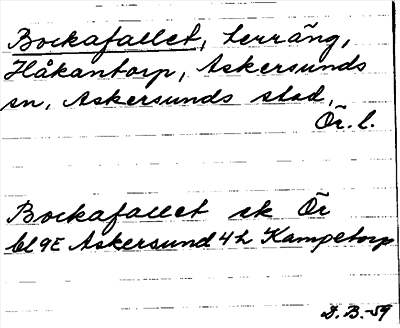 Bockafallet, terräng,
Håkantorp, Askersunds
sn, Askersunds stad,
Ör. l.
Bockafallet sk Ör
bl 9E Askersund 4h Kampetorp
D. B. -59